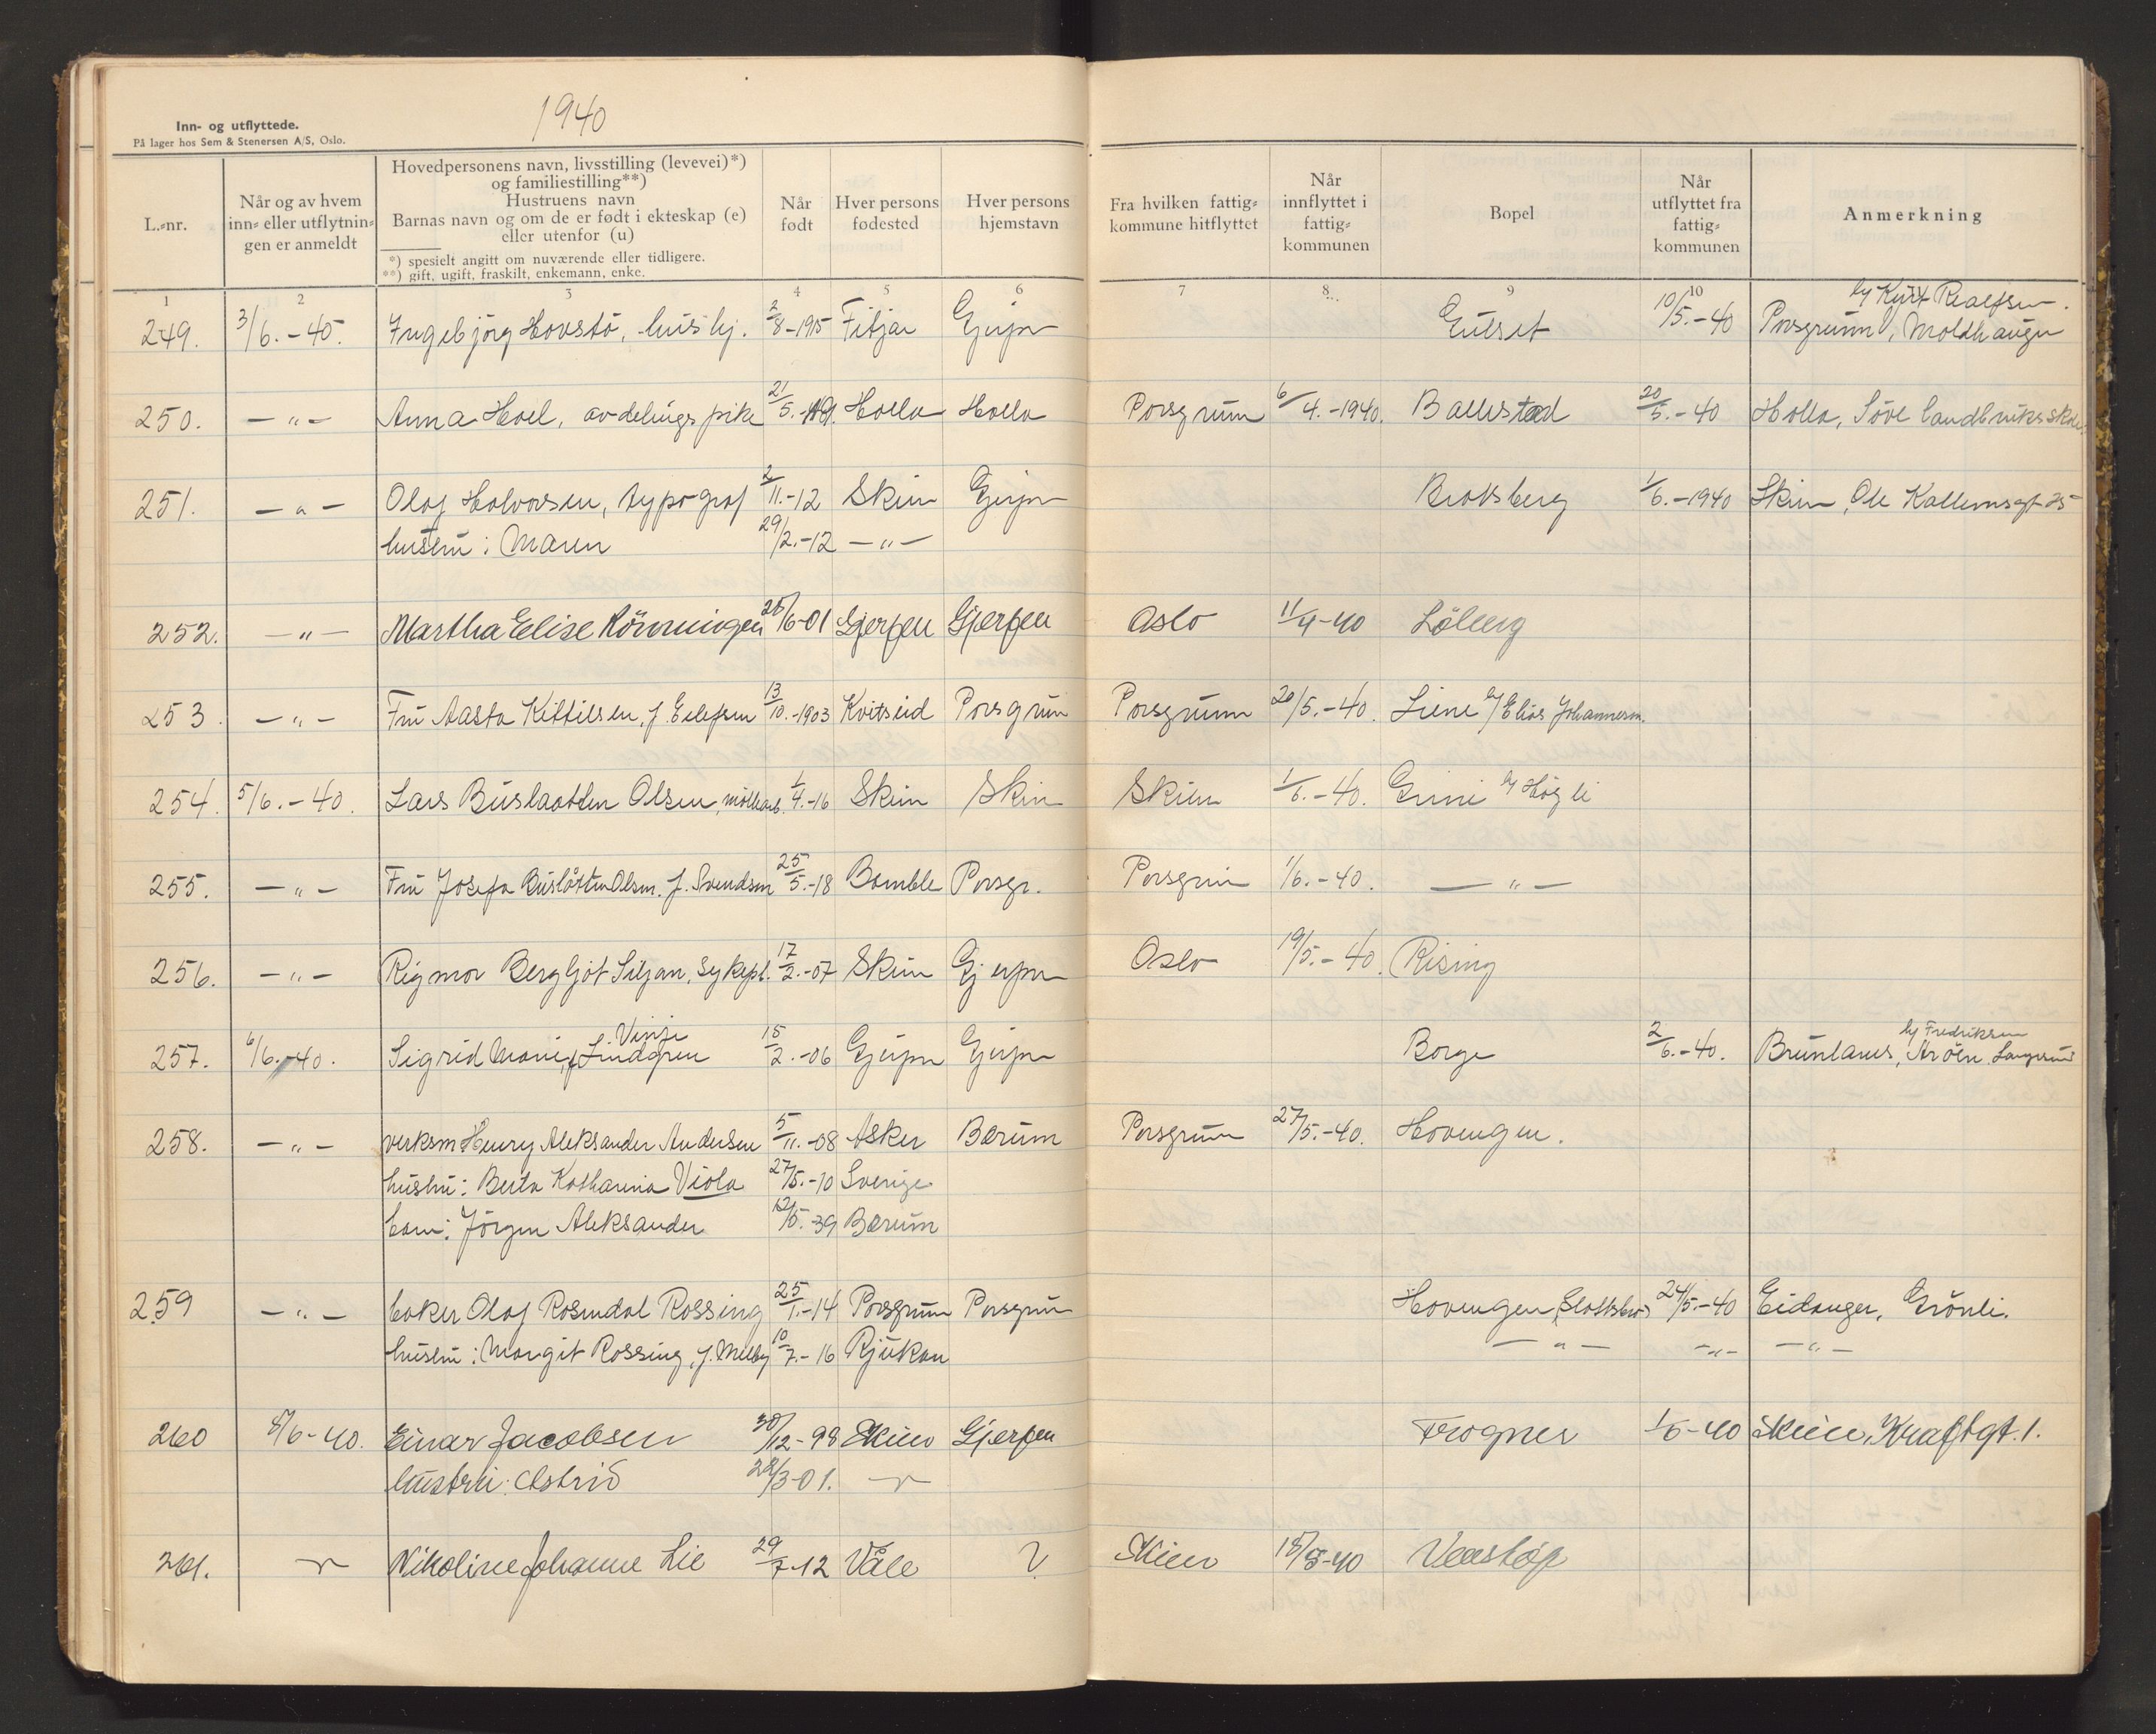 1940
Inn- og utflyttede.
På lager hos Sem & Stenersen A/S, Oslo.
L.-nr.
Når og av hvem inn- eller utflytnin- gen er anmeldt
Hovedpersonens navn, livsstilling (levevei)*)
og familiestilling**)
Hustruens navn
Barnas navn og om de er født i ekteskap (e)
eller utenfor (u)
*) spesielt angitt om nuværende eller tidligere.
**) gift, ugift, fraskilt, enkemann, enke.
Når født
Hver persons fødested
Hver persons hjemstavn
Fra hvilken fattig- kommune hitflyttet
Når innflyttet i fattig- kommunen
Bopel
Når utflyttet fra fattig- kommunen
Anmerkning
1 2 3 4 5 6 7 8 9 10
h/ Kyrt Realfsen.
249. 3/6.-40. Ingebjörg Hovstö, hushj. 2/8-1915 Fitjar Gjerpen Gulset 10/5.-40 Porsgrunn, Moldhaugen
250. -"- Anna Hoel, avdelingspike 21/5.-19. Holla Holla Porsgrunn 6/4.-1940. Ballestad 20/5.-40 Holla, Söve landbruksskole
251. -"- Olaf Halvorsen, typograf 2/11.-12 Skien Gjerpen Bratsberg 1/6.-1940 Skien, Ole Kallemsgt 25
hustru: Maren 29/2.-12 -"-
252. -"- Martha Elise Rönningen 25/6-01 Gjerpen Gjerpen Oslo 11/4-40 Löberg
253. -"- Fru Aasta Kittilsen, f. Eilefsen 13/10.-1903 Kvitseid Porsgrun Porsgrunn 20/5.-40. Liene h/ Elias Johannesen.
254. 5/6.-40. Lars Buslaatten Olsen, möllearb. 1/4.-16 Skien Skien Skien 1/6.-40. Grini h/ Högli
255. -"- Fru Josefa Buslåtten Olsen. f. Svendsen 25/5.-18 Bamble Porsgr. Porsgrun 1/6.-40. -"-
256. -"- Rigmor Bergljot Siljan, sykepl. 17/2.-07 Skien Gjerpen Oslo 19/5.-40. Rising
Vinje h/ Fredriksen
257. 6/6.-40. Sigrid Marie, f. Lindgren 15/2.-06 Gjerpen Gjerpen Borge 2/6.-40. Brunlanes, Aröen, Langesund
258. -"- verksm Henry Aleksander Andersen 5/11.-08 Asker Bærum Porsgrunn 27/5.-40. Hovengen.
hustru: Berta Katharina Viola 27/5.-10 Sverige
barn: Jörgen Aleksander 12/5.-39 Bærum
259 -"- baker Olaf Rosendal Rossing 25/1.-14 Porsgrunn Porsgrun Hovengen, 24/5.-40 Eidanger, Grönli.
hustru: Margit Rossing, f. Melby 10/7.-16 Rjukan -"- -"- -"-
260 8/6-40. Einar Jacobsen 30/12-98 Skien Gjerpen Frogner 1/6-40 Skien, Kraftgt. 1.
hustru: Astrid 28/3-01. -"-
261. -"- Nikoline Johanne Lie 29/7-12 Våle ? Skien 15/5-40 Venstöp